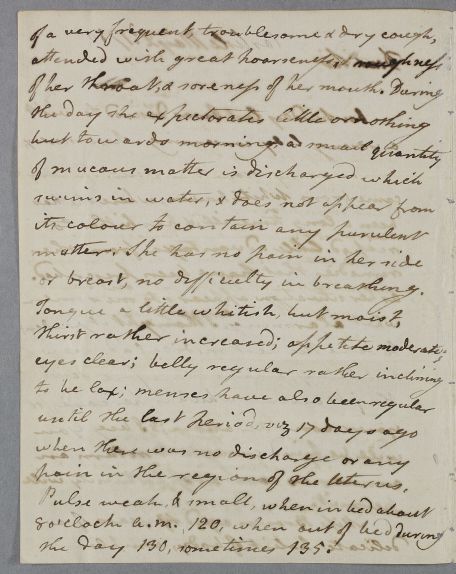 of a very frequent, troublesome & dry cough,
attended with great hoarseness, & roughness
of her throat, & soreness of her mouth. During
the day she expectorates little or nothing
but towards morning, a small quantity
of mucous matter is discharged which
swims in water, & does not appear from
its colour to contain any purulent
matter. She has no pain in her side
or breast, no difficulty in breathing.
Tongue a little whitish, but moist,
thirst rather increased; appetite moderate;
eyes clear; belly regular rather inclining
to be lax; menses have also been regular
until the last period, viz 17 days ago
when there was no discharge or any
pain in the region of the Uterus.
Pulse weak, & small, when in bed about
8 oclock a.m. 120, when out of bed during
the day 130, sometimes 135.